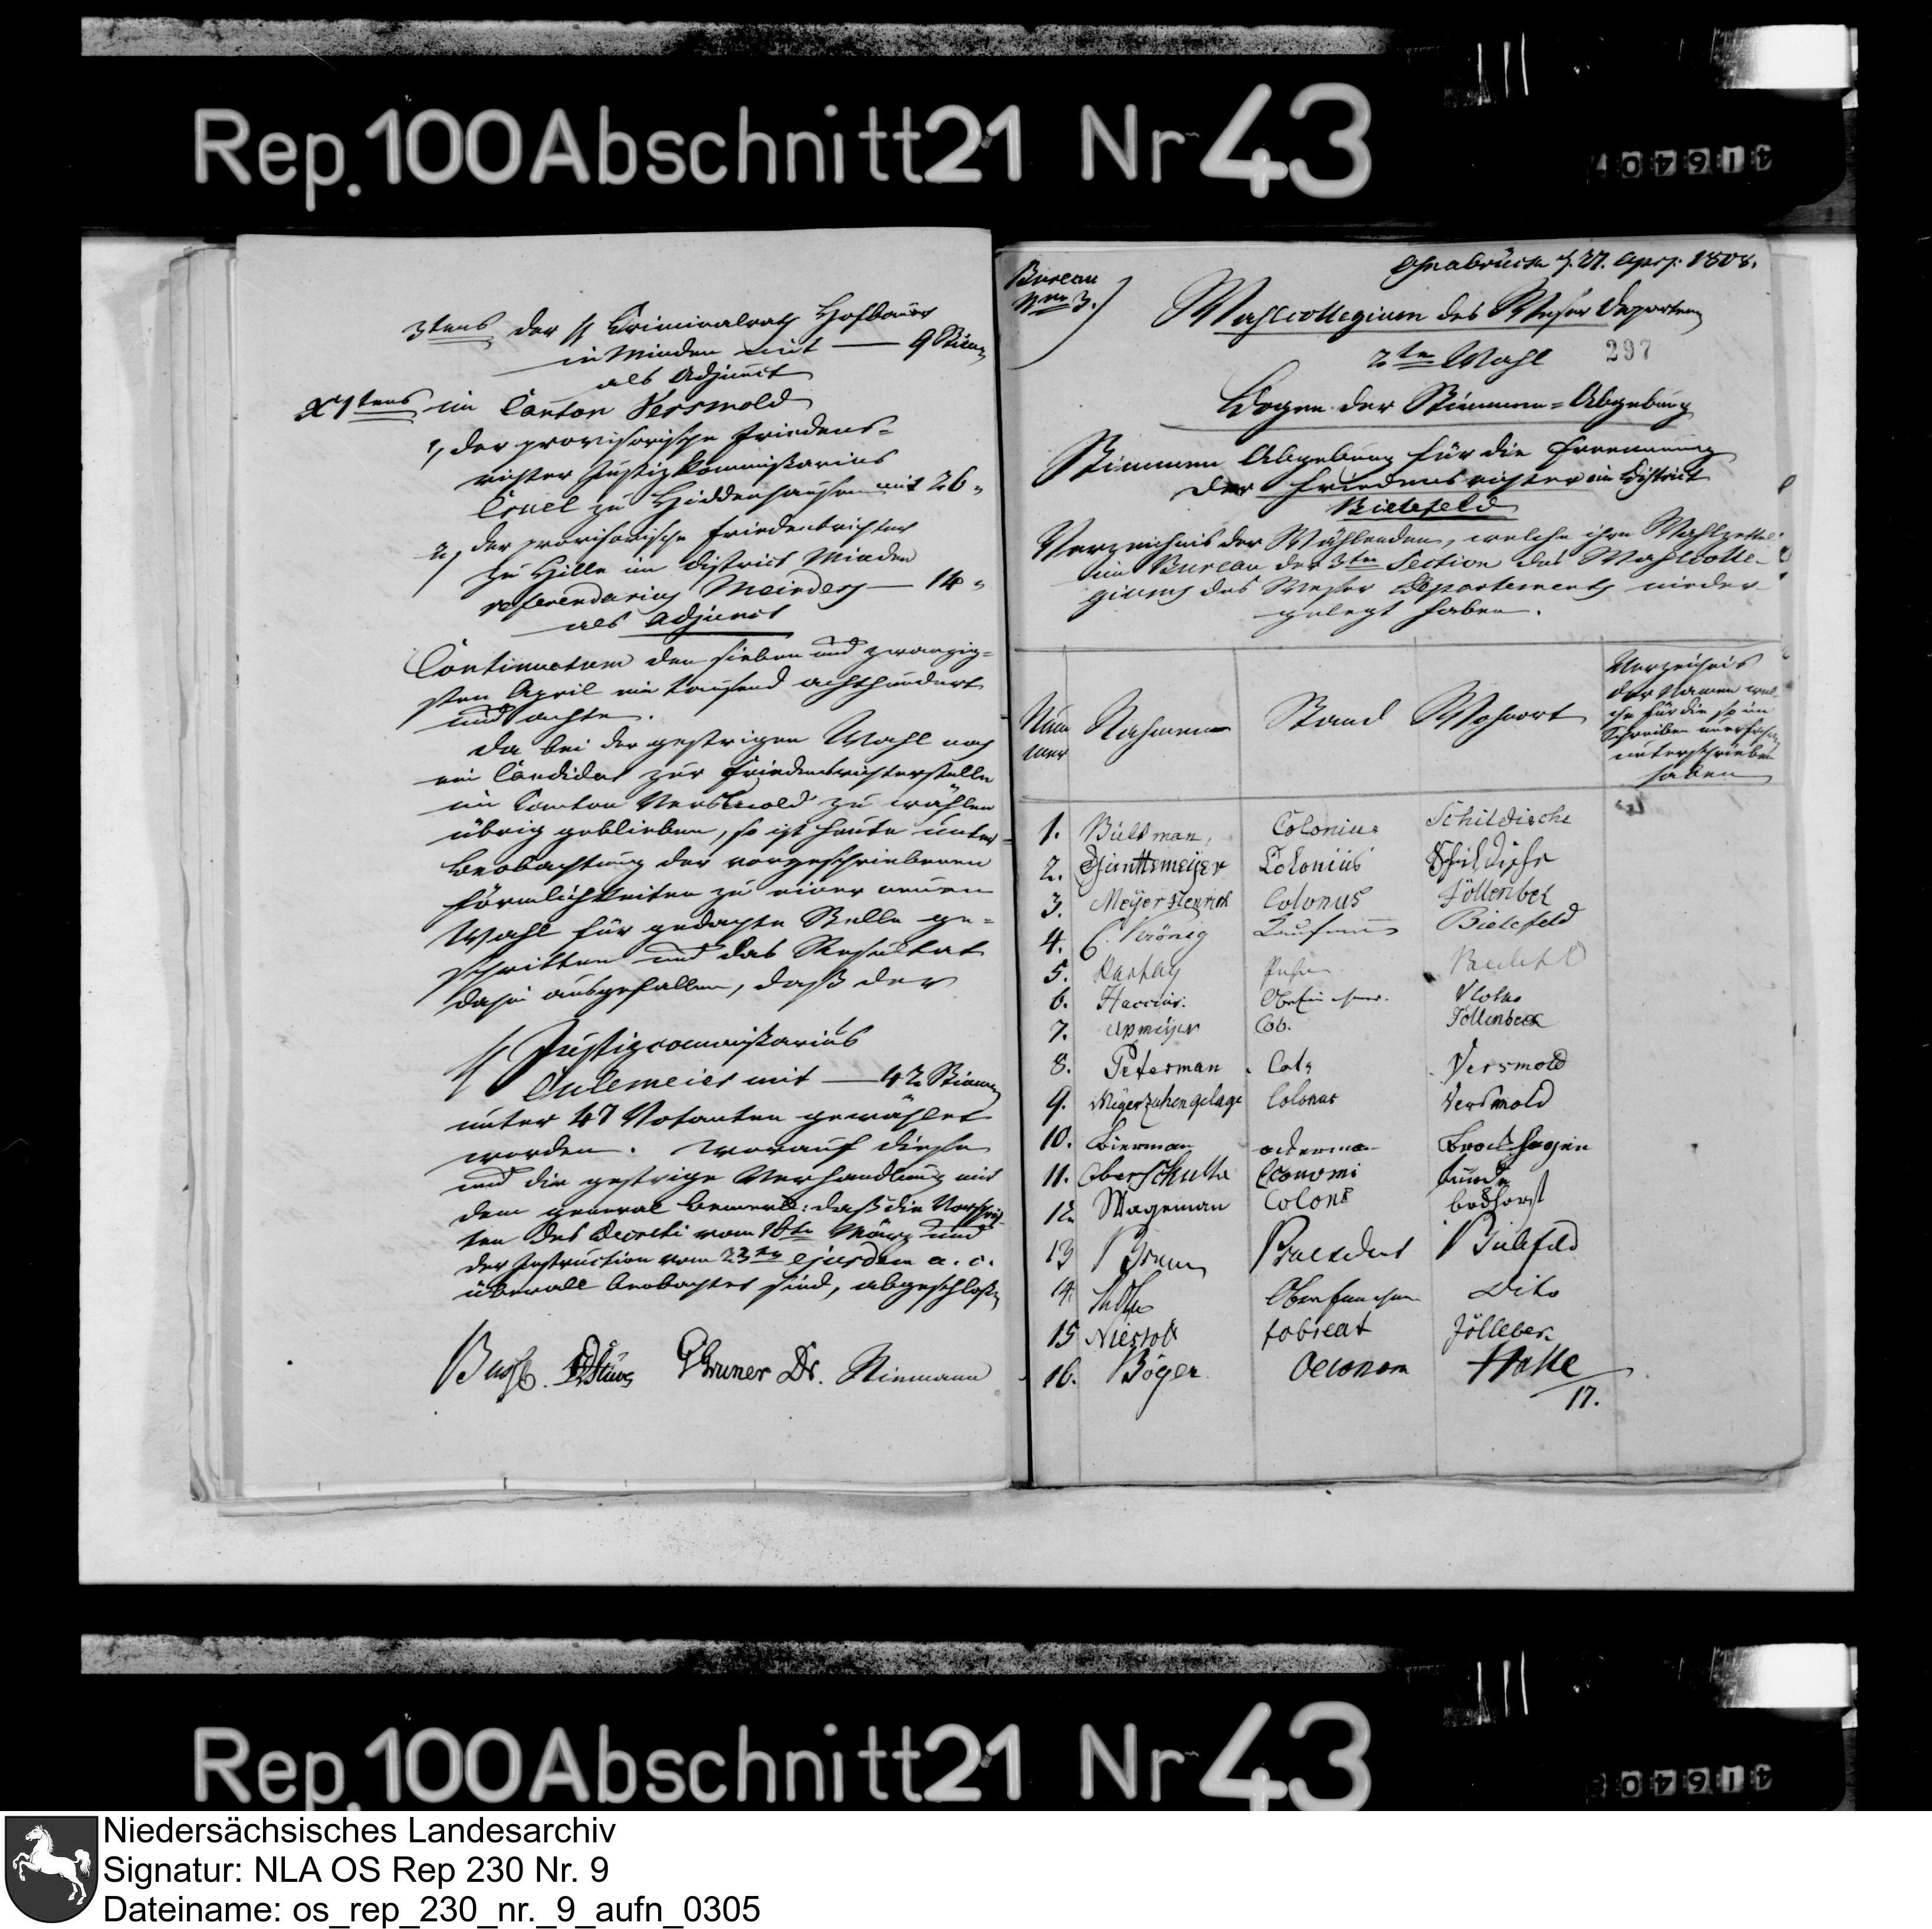 Rep. 100 Abschnitt 21 Nr 43
3tens der H Criminalrath Hofbauer
in Minden mit — 9 Stim
als Adjunct
X 1tens im Canton Versmold
1, der provisorische Friedens-
richter Justizkommissarius
Consel zu Hiddenhausen mit 26 "
2, der provisorische Friedensrichter
zu Hille im District Minden
referendarius Meinders — 14 "
als Adjunct
Continuatum den sieben und zwanzig-
sten April ein tausend achthundert
und achte.
Da bei der gestrigen Wahl noch
ein Candidat zur Friedensrichterstelle
im Canton Versmold zu wählen
übrig geblieben, so ist heute unter
Beobachtung der vorgeschriebenen
Förmlichkeiten zu einer neuen
Wahl für gedachte Stelle ge-
schritten und das Resultat
dahin ausgefallen, daß der
H Justizcommissarius
Culemeier mit — 42 Stimmen
unter 47 Votanten gewählet
worden. worauf diese
und die gestrige Verhandlung mit
dem general bemerk: daß die Vorschrif-
ten des Decreti vom 18ten März und
der Instruction vom 23ten ejusdem a. c.
überall beobachtet sind, abgeschloßen
Busch. Stüve Gruner Dr. Niemann
Bureau
Nro 3.
Osnabrück d. 27. April 1808.
Wahlcollegium des Weser Departem
2te Wahl
297
Bogen der Stimmen-Abgebung
Stimmen Abgebung für die Ernennung
der Friedensrichter im District
Bielefeld
Verzeichnis der Wählenden, welche ihre Wahlzettel
im Bureau der 3ten Section des Wahlcolle-
giums des Weser Departements nieder-
gelegt haben.
Num mer Nahmen Stand Wohnort Verzeichnis der Namen wel-
che für die so im
Schreiben unerfahren
unterschrieben
haben
1. Bültman, Colonius Schildische
2. Colonius Schildische
3. Meyer Colonus Jöllenbek
4. C. Krönig Kaufmann Bielefeld
5.
6. Haccius. Vlotho
7. Upmeyer Col. Jöllenbeck
8. Peterman Cols Versmold
9. Meyer zu hengelage Colonus Versmold
10. Bierman ackerman Brockhagen
11. Oberschulte Economi bünde
12 Wageman Colons bockhorst
13 Praesident Bielefeld
14. Dito
15 Jöllebek
16. Böger Oeconom Halle
17.
Rep. 100 Abschnitt 21 Nr 43
Niedersächsisches Landesarchiv
Signatur: NLA OS Rep 230 Nr. 9
Dateiname: os_rep_230_nr._9_aufn_0305